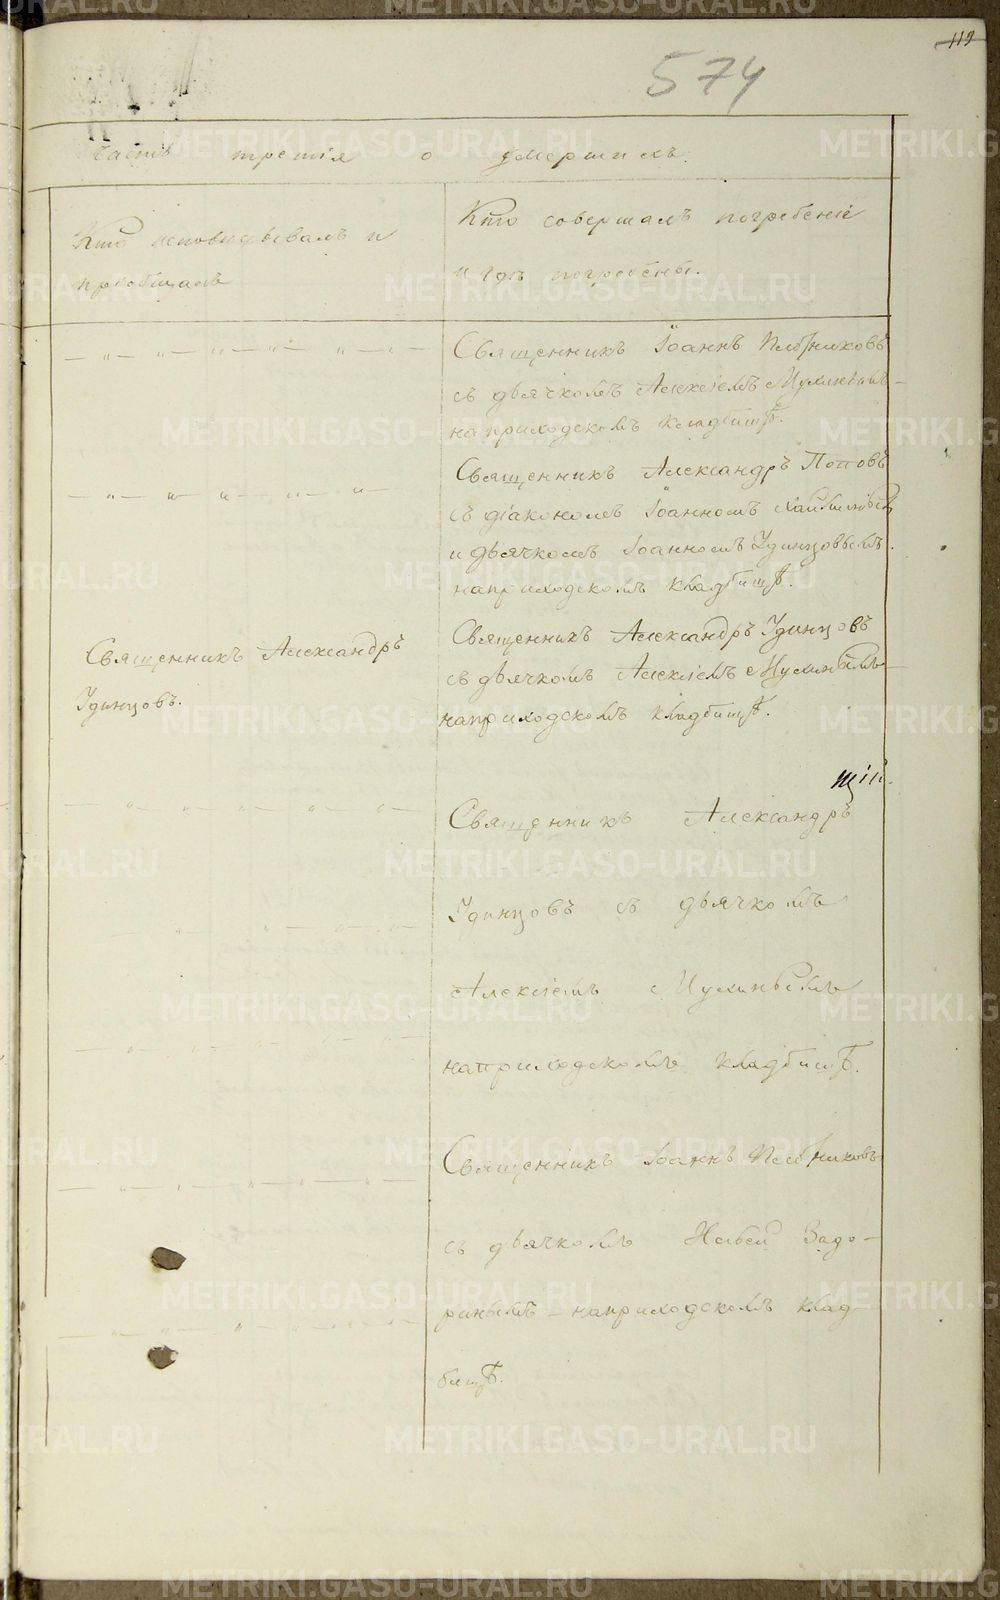 119
574
Часть третія о умершихъ.
Кто исповѣдывалъ и
пріобщалъ
Кто совершалъ погребеніе
и гдѣ погребены.
Священникъ Іоаннъ
съ дьячкомъ Алексіемъ Мухинымъ
на приходскомъ кладбищѣ.
Священникъ Александръ Поповъ
съ діакономъ Іоанномъ
и дьячкомъ Іоанномъ Удинцовымъ
на приходскомъ кладбищѣ.
Священникъ Александръ
Удинцовъ.
Священникъ Александръ Удинцовъ
съ дьячкомъ Алексіемъ Мухинымъ
на приходскомъ кладбищѣ.
щій.
Священникъ Александръ
Удинцовъ съ дьячкомъ
Алексіемъ Мухинымъ
на приходскомъ кладбищѣ.
Священникъ Іоаннъ
съ дьячкомъ Задо-
ринымъ - на приходскомъ клад-
бищѣ.
METRIKI.GASO-URAL.RU